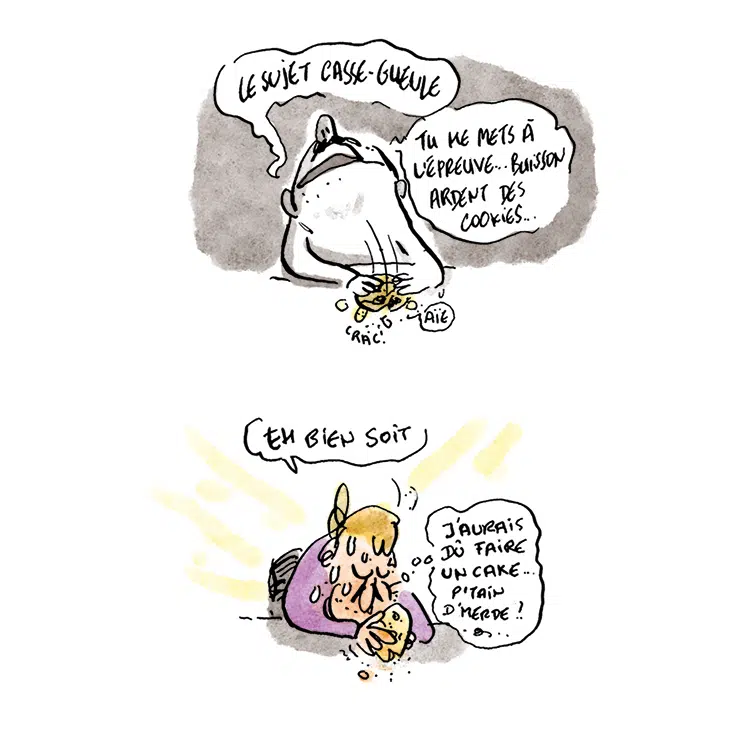 LE SUJET CASSE-GUEULE
TU ME METS À
L'ÉPREUVE... BUISSON
ARDENT DES
COOKIES...
CRAC!
AÏE
EH BIEN SOIT
J'AURAIS
DÛ FAIRE
UN CAKE...
P'TAIN
D'MERDE!